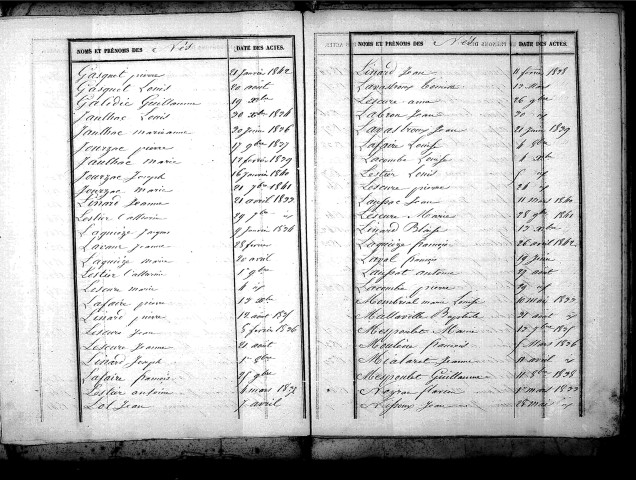 NOMS ET PRÉNOMS DES Nés DATE DES ACTES.
Gasquet pierre 21 Janvier 1842
Gasquet Louis 20 août
Galidie Guillaume 19 Xbre
Jaulhac Louis 20 Xbre 1836
Jaulhac marianne 20 Juin 1836
Jourzac pierre 17 9bre 1837
Jaulhac marie 12 février 1839
Jourzac Joseph 16 Janvier 1840
Jourzac marie 21 9bre 1841
Linard Jeanne 21 avril 1833
Lestier Catherine 29 id
Laquièze 9 Janvier 1834
Lavaur Jeanne 28 février
Laquièze marie 20 avril
Lestier Catherine 1 9bre
Leseure marie 4 id
Lafaire pierre 12 Xbre
Linard pierre 12 août 1835
Leseure Jean 5 février 1836
Leseure Jeanne 21 août
Linard Joseph
Lafaire francois 25 9bre
Lestier antoine 4 mars 1837
Lol Jean 7 avril
NOMS ET PRÉNOMS DES Nés DATE DES ACTES.
Linard Jean 11 février 1838
Lavastroux 12 Mars
Leseure anna 26 9bre
Labron Jean 30 id
Lavastroux Jean 21 Juin 1839
Lafaire Louise 4 8bre
Lacombe Louise 4 Xbre
Lestier Louis 5 id
Leseure pierre 26 id
Laussac Jean 11 Mars 1840
Leseure Marie 28 9bre 1841
Linard Blaise 12 Xbre
Laquièze françois 26 août 1842
Layal françois 19 Juin
Laussat antoine 27 août
Lacombe pierre 29 id
Monbrial marie Louise 10 mai 1833
Mallaville Baptiste 21 août id
Meyroulet Marie 12 1835
Moulène francois Mars 1836
Mialaret Jeanne 11 avril id
Meyroulet Guillaume 11 8bre 1838
Neyrou mars 1833
Jean 28 Mai id